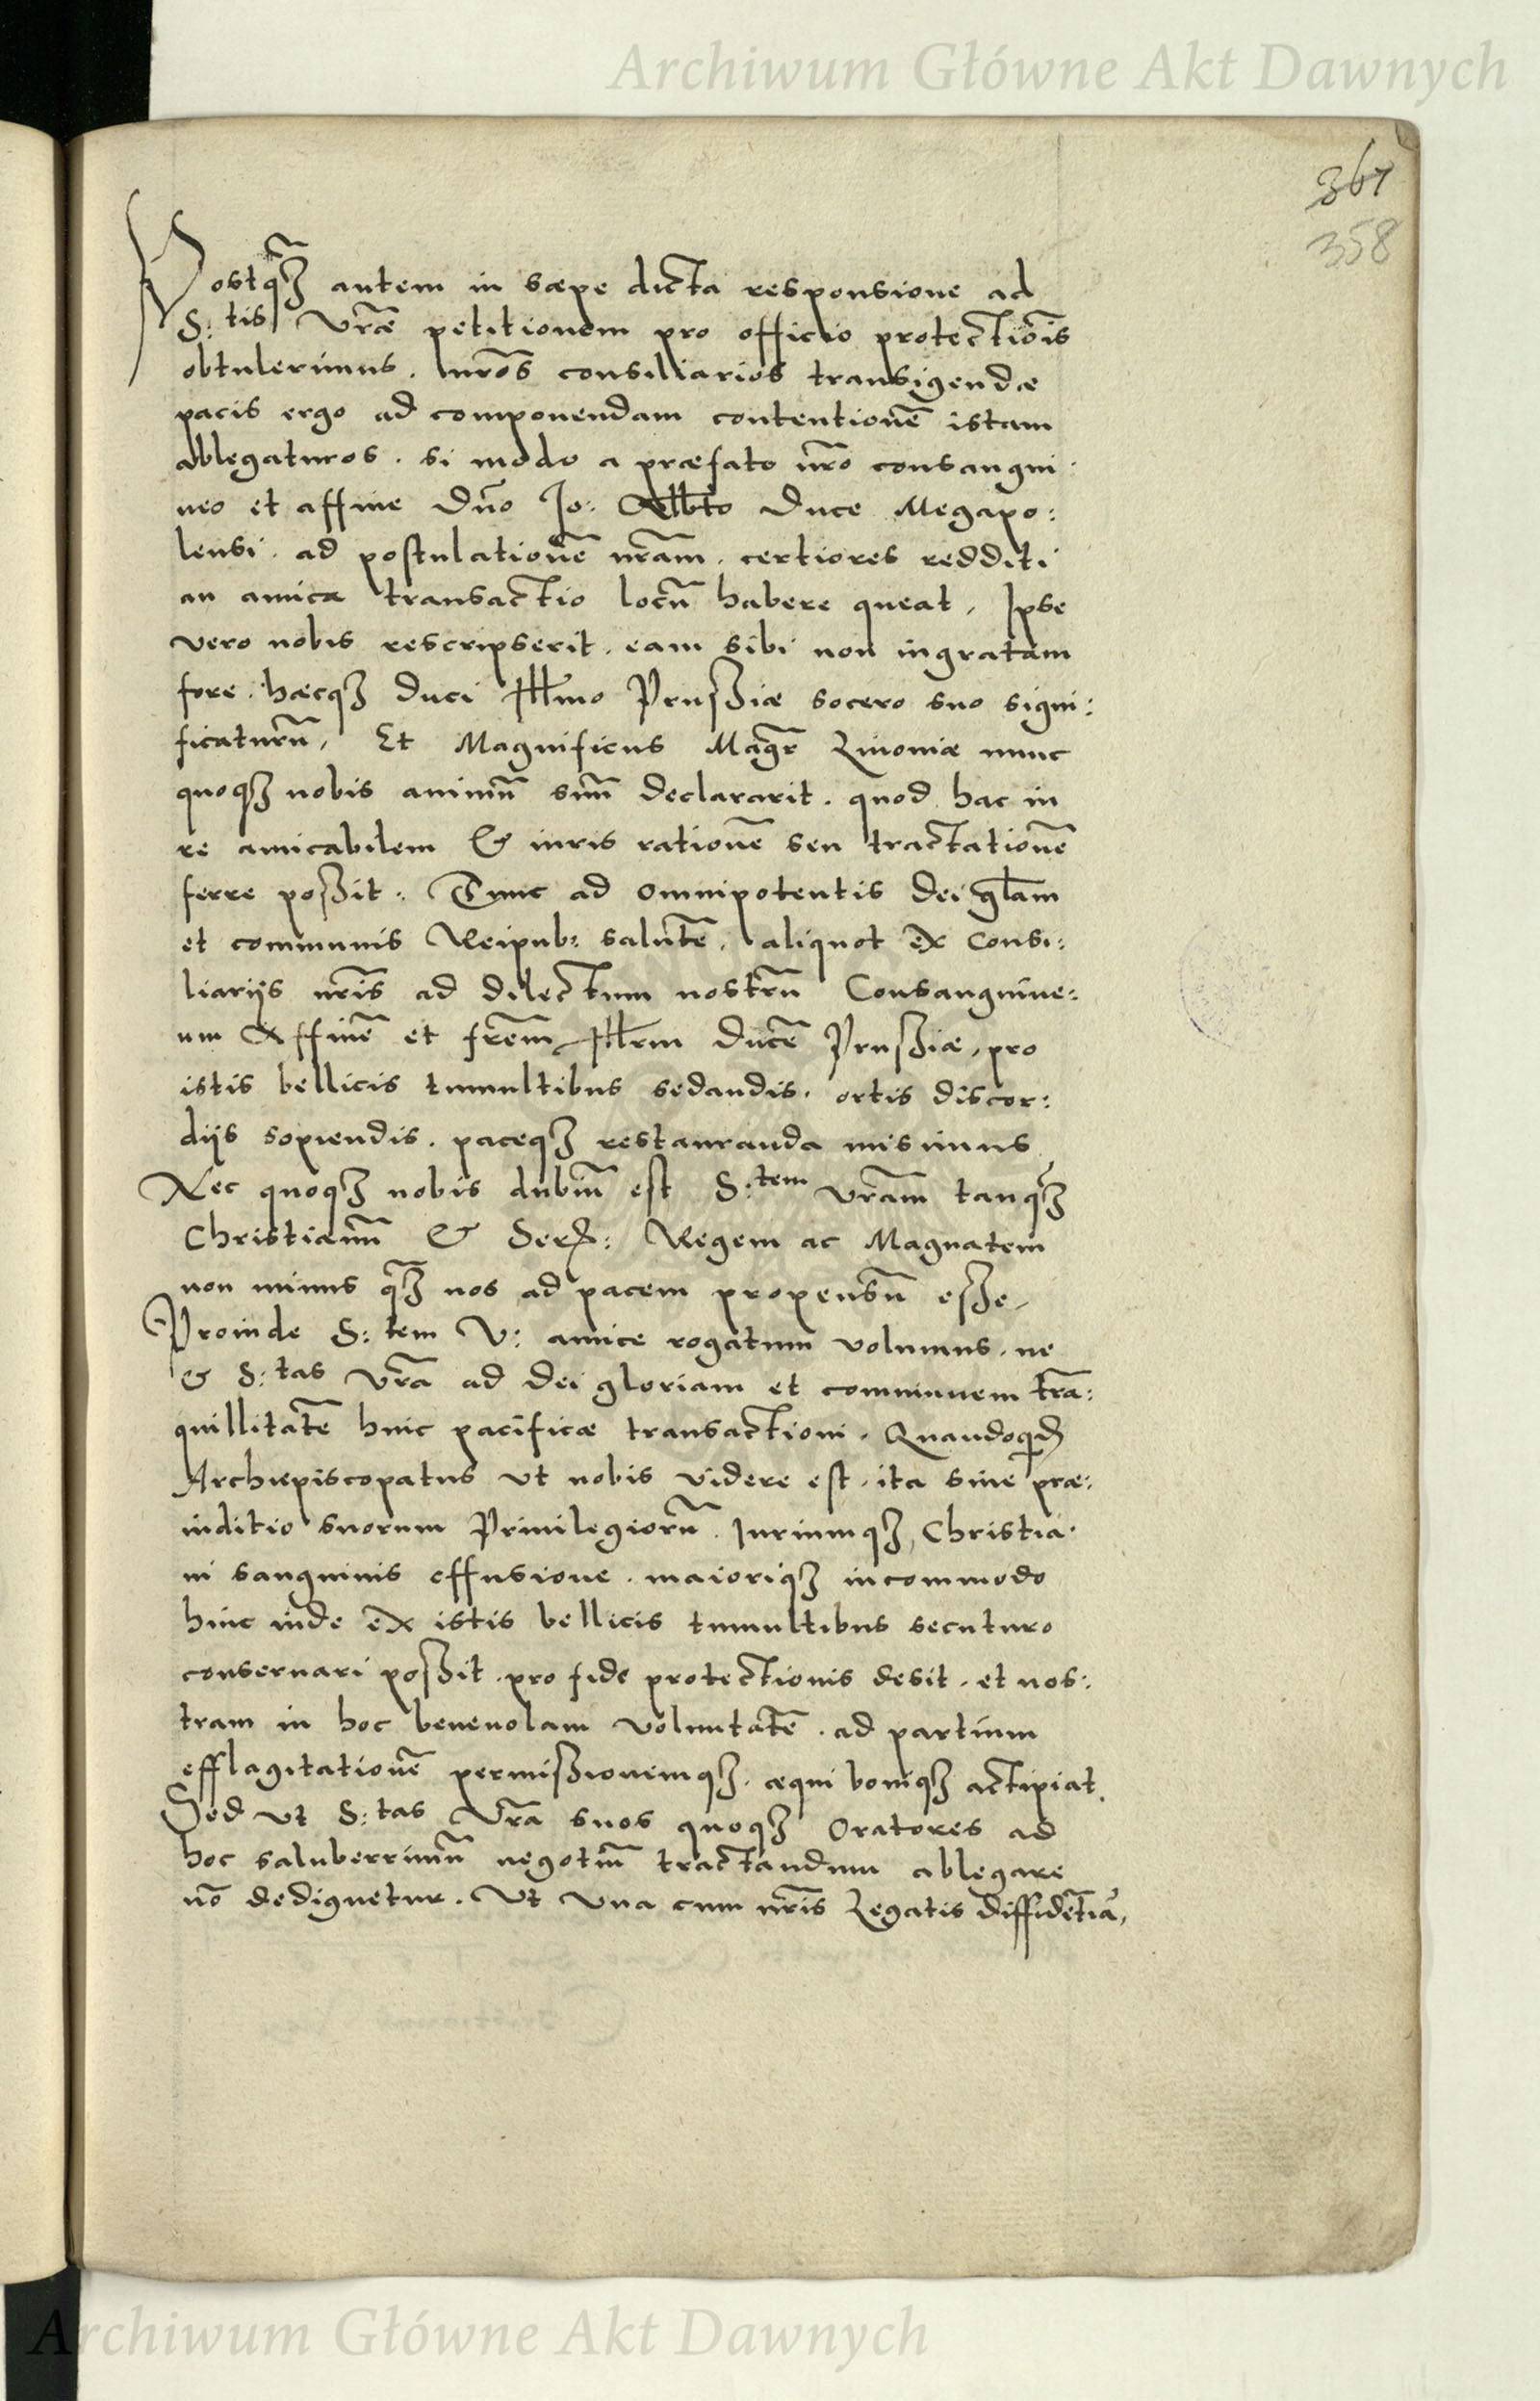 Archiwum Główne Akt Dawnych
367
358
Postq̃ȝ autem in sæpe dicta responsione ad
S:tis Vr̃æ petitionem pro officio protectiõis
obtulerimus. nr̃os consiliarios transigendæ
pacis ergo ad componendam contentionẽ istam
ablegaturos. si modo a præfato nr̃o consangui:
neo et affine Dño Jo: Alb̃to Duce Megapo:
lensi. ad postulationẽ nr̃am. certiores redditi
an amica transactio locũ habere queat, Ipse
vero nobis rescripserit. eam sibi non ingratam
fore. hæcqȝ Duci Ill̃mo Prussiæ socero suo signi:
ficaturũ, Et Magnificus Mag̃r Liuoniæ nunc
quoqȝ nobis animũ suũ declararit. quod hac in
re amicabilem & iuris rationẽ seu tractationẽ
ferre possit. Tunc ad omnipotentis Dei gl̃am
et communis Reipub: salutẽ, aliquot ex Consi:
liarijs nr̃is ad dilectum nostrũ Consanguine:
um Affinẽ et fr̃em Ill̃rm Ducẽ Prussiæ, pro
istis bellicis tumultibus sedandis. ortis discor:
dijs sopiendis. paceqȝ restauranda misimus
Nec quoqȝ nobis dubiũ est S:tem vr̃am tanq̃ȝ
Christianũ & Ser: Regem ac Magnatem
non minus q̃ȝ nos ad pacem propensũ esse,
Proinde S:tem V: amice rogatum volumus. ne
& S:tas Vr̃a ad Dei gloriam et communem trã:
quillitatẽ huic pacificæ transactioni. Quandoqd̃
Archiepiscopatus vt nobis videre est. ita sine præ:
iuditio suorum Priuilegiorũ. Iuriumqȝ, Christia:
ni sanguinis effusione. maioriqȝ incommodo
hinc inde ex istis bellicis tumultibus secuturo
conseruari possit. pro fide protectionis desit. et nos:
tram in hoc beneuolam voluntatẽ. ad partium
efflagitationẽ permissionemqȝ. æqui boniqȝ accipiat.
Sed vt S:tas Vr̃a suos quoqȝ Oratores ad
hoc saluberrimũ negotiũ tractandum ablegare
nõ dedignetur. Vt vna cum nr̃is Legatis diffidẽtiã,
Archiwum Główne Akt Dawnych